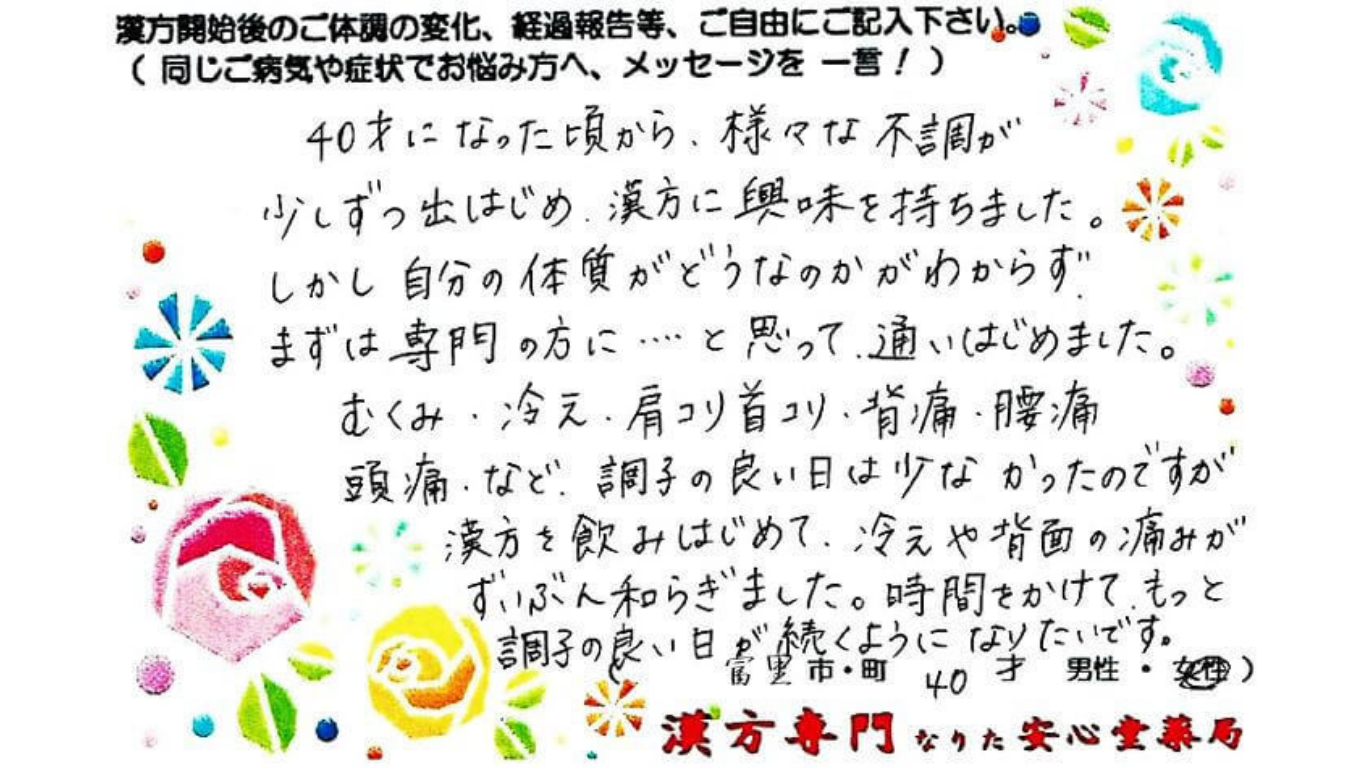 漢方開始後のご体調の変化、経過報告等、ご自由にご記入下さい。
（ 同じご病気や症状でお悩み方へ、メッセージを 一言！ ）
40才になった頃から、様々な不調が
少しずつ出はじめ、漢方に興味を持ちました。
しかし自分の体質がどうなのかがわからず、
まずは専門の方に‥‥と思って、通いはじめました。
むくみ・冷え・肩コリ首コリ・背痛・腰痛
頭痛・など、調子の良い日は少なかったのですが
漢方を飲みはじめて、冷えや背面の痛みが
ずいぶん和らぎました。時間をかけて、もっと
調子の良い日が続くようになりたいです。
（ 富里 市・町 40 才 男性 ・ 女性 ）
漢方専門 なりた 安心堂薬局